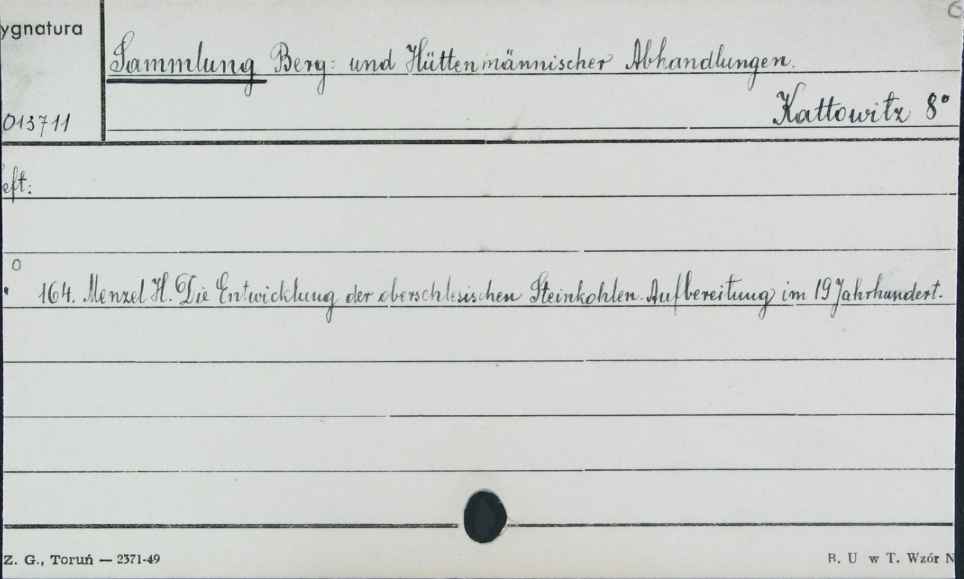 ygnatura
6
Sammlung Berg- und Hüttenmännischer Abhandlungen.
013711
Kattowitz 8°
eft:
o
164. Menzel H. Die Entwicklung der oberschlesischen Steinkohlen-Aufbereitung im 19 Jahrhundert.
Z. G., Toruń — 2371-49
B. U w T. Wzór N